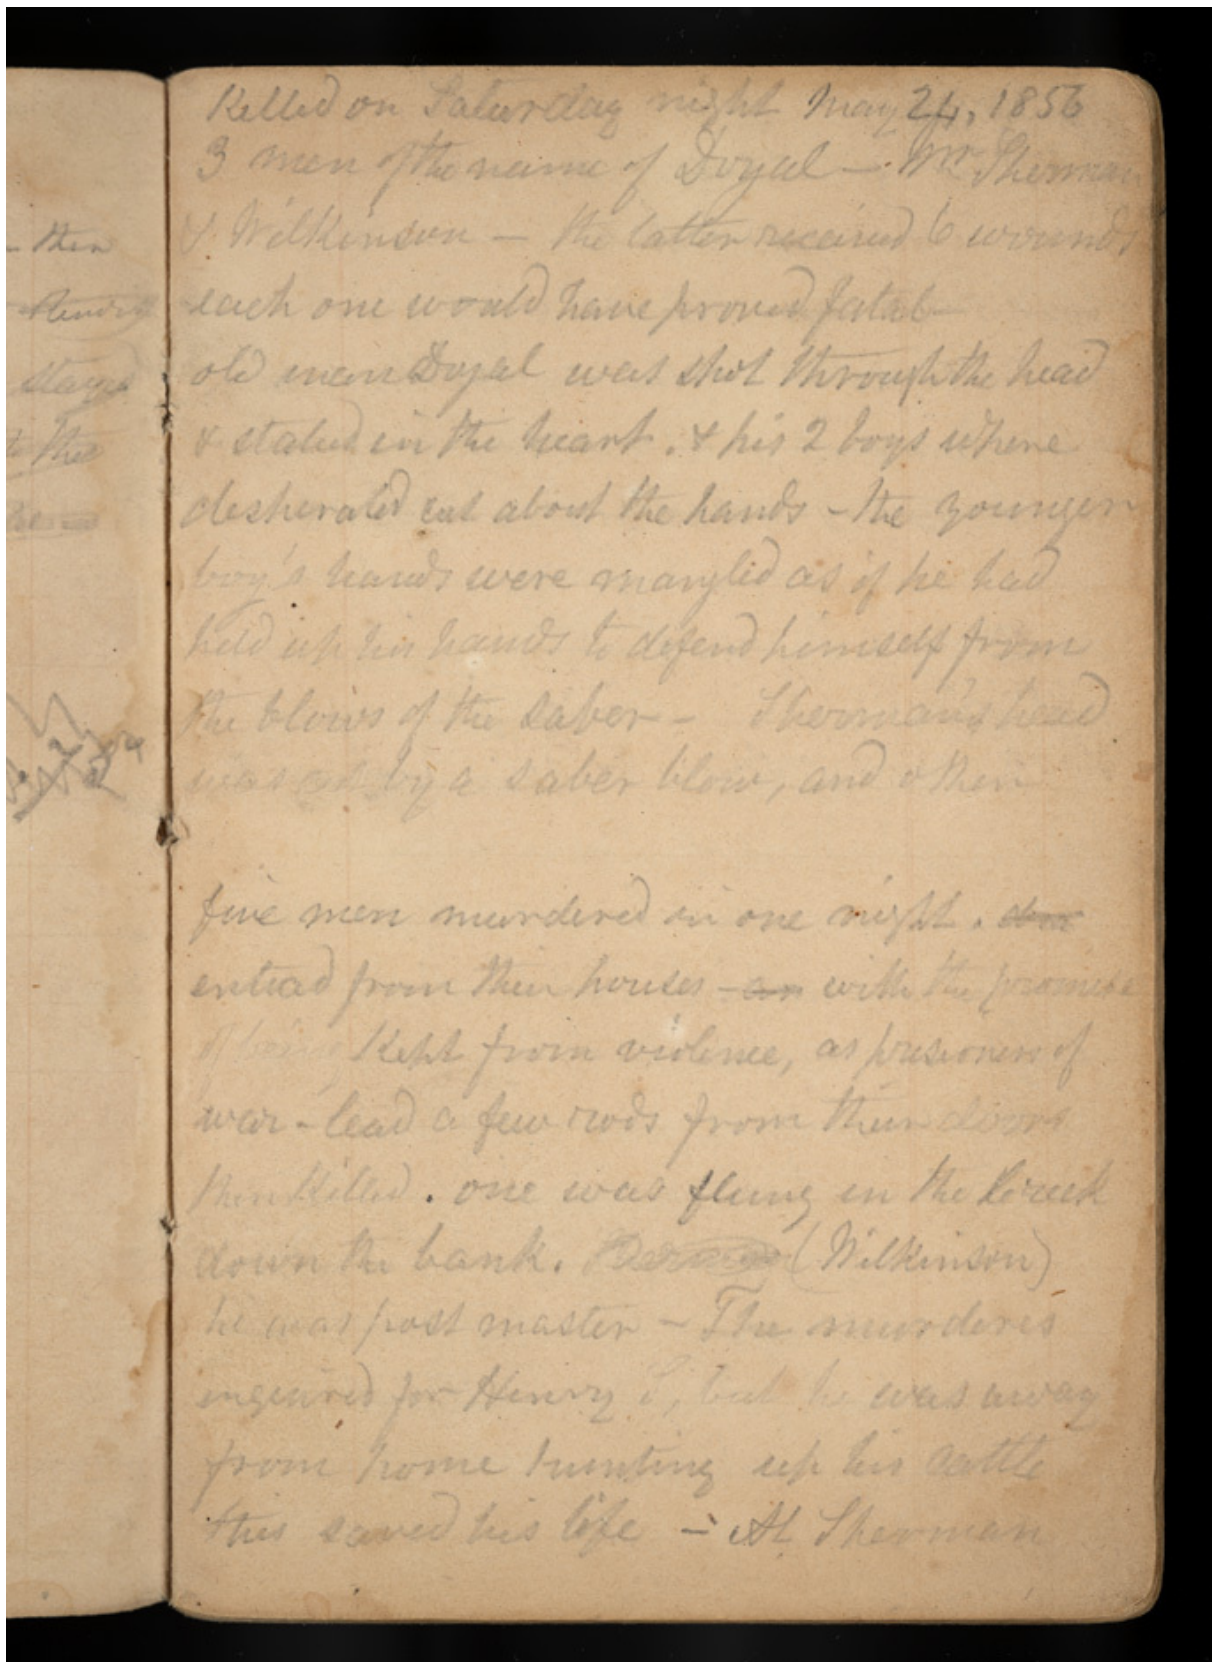 - then
stayed
the
Killed on Saturday night May 24, 1856
3 men of the name of Doyal — Mr Sherman
& Wilkinson — the latter received 6 wounds
each one would have proved fatal —
old man Doyal was shot through the head
& stabed in the heart. & his 2 boys where
desperated cut about the hands - the younger
boy's hands were mangled as if he had
held up his hands to defend himself from
the blows of the saber - Sherman's head
was cut by a saber blow, and other
five men murdered in one night.
enticed from their houses - an with the promise
of being Kept from violence, as prisoners of
war - lead a few rods from their doors
then Killed. one was flung in the Creek
down the bank. (Wilkinson)
he was post master - The murderers
enquired for Henry S, but he was away
from home hunting up his cattle
this saved his life - At Sherman